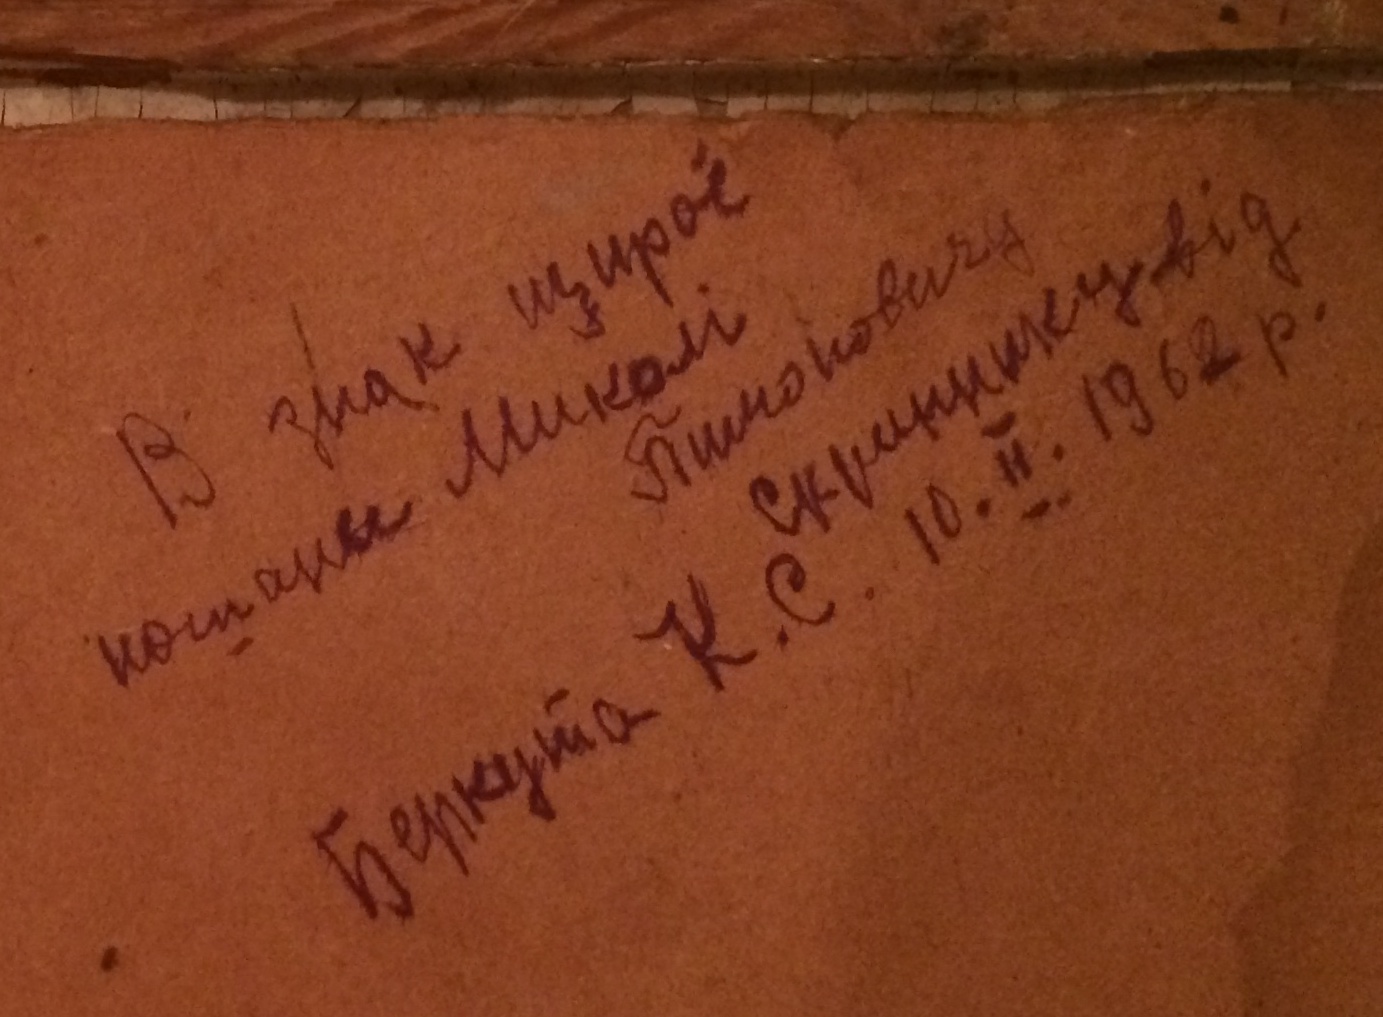 В знак щирої
пошани Миколі
Пимоновичу
Скрипнику від
Беркута К.С. 10.II.1962 р.